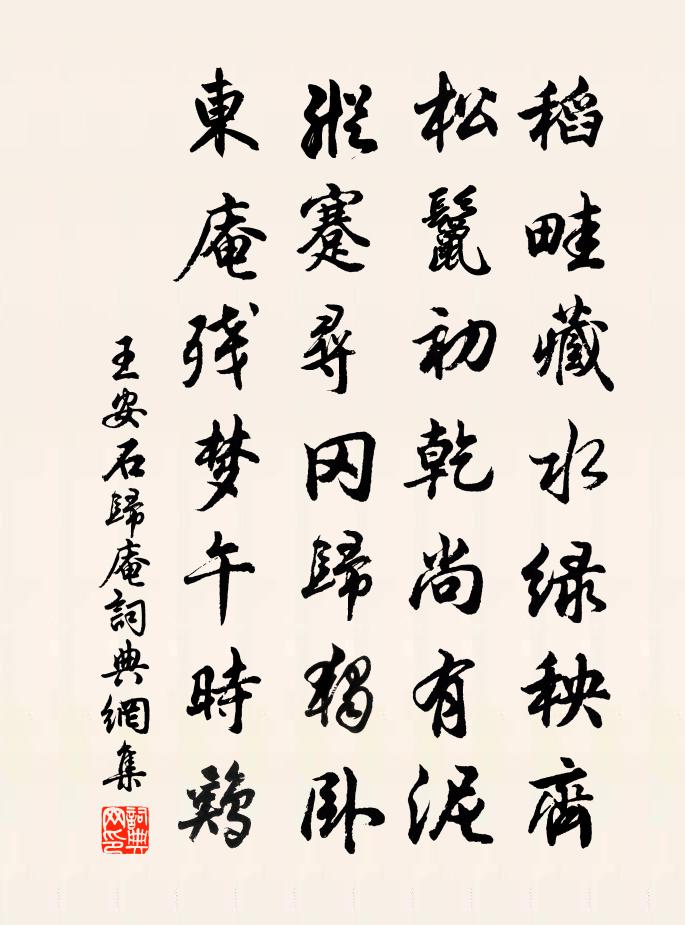 稻畦藏水绿秧齊
松鬣初乾尚有泥
縱蹇尋冈歸獨卧
東庵残梦午時鷄
王安石歸庵詞典網集
詞典网印